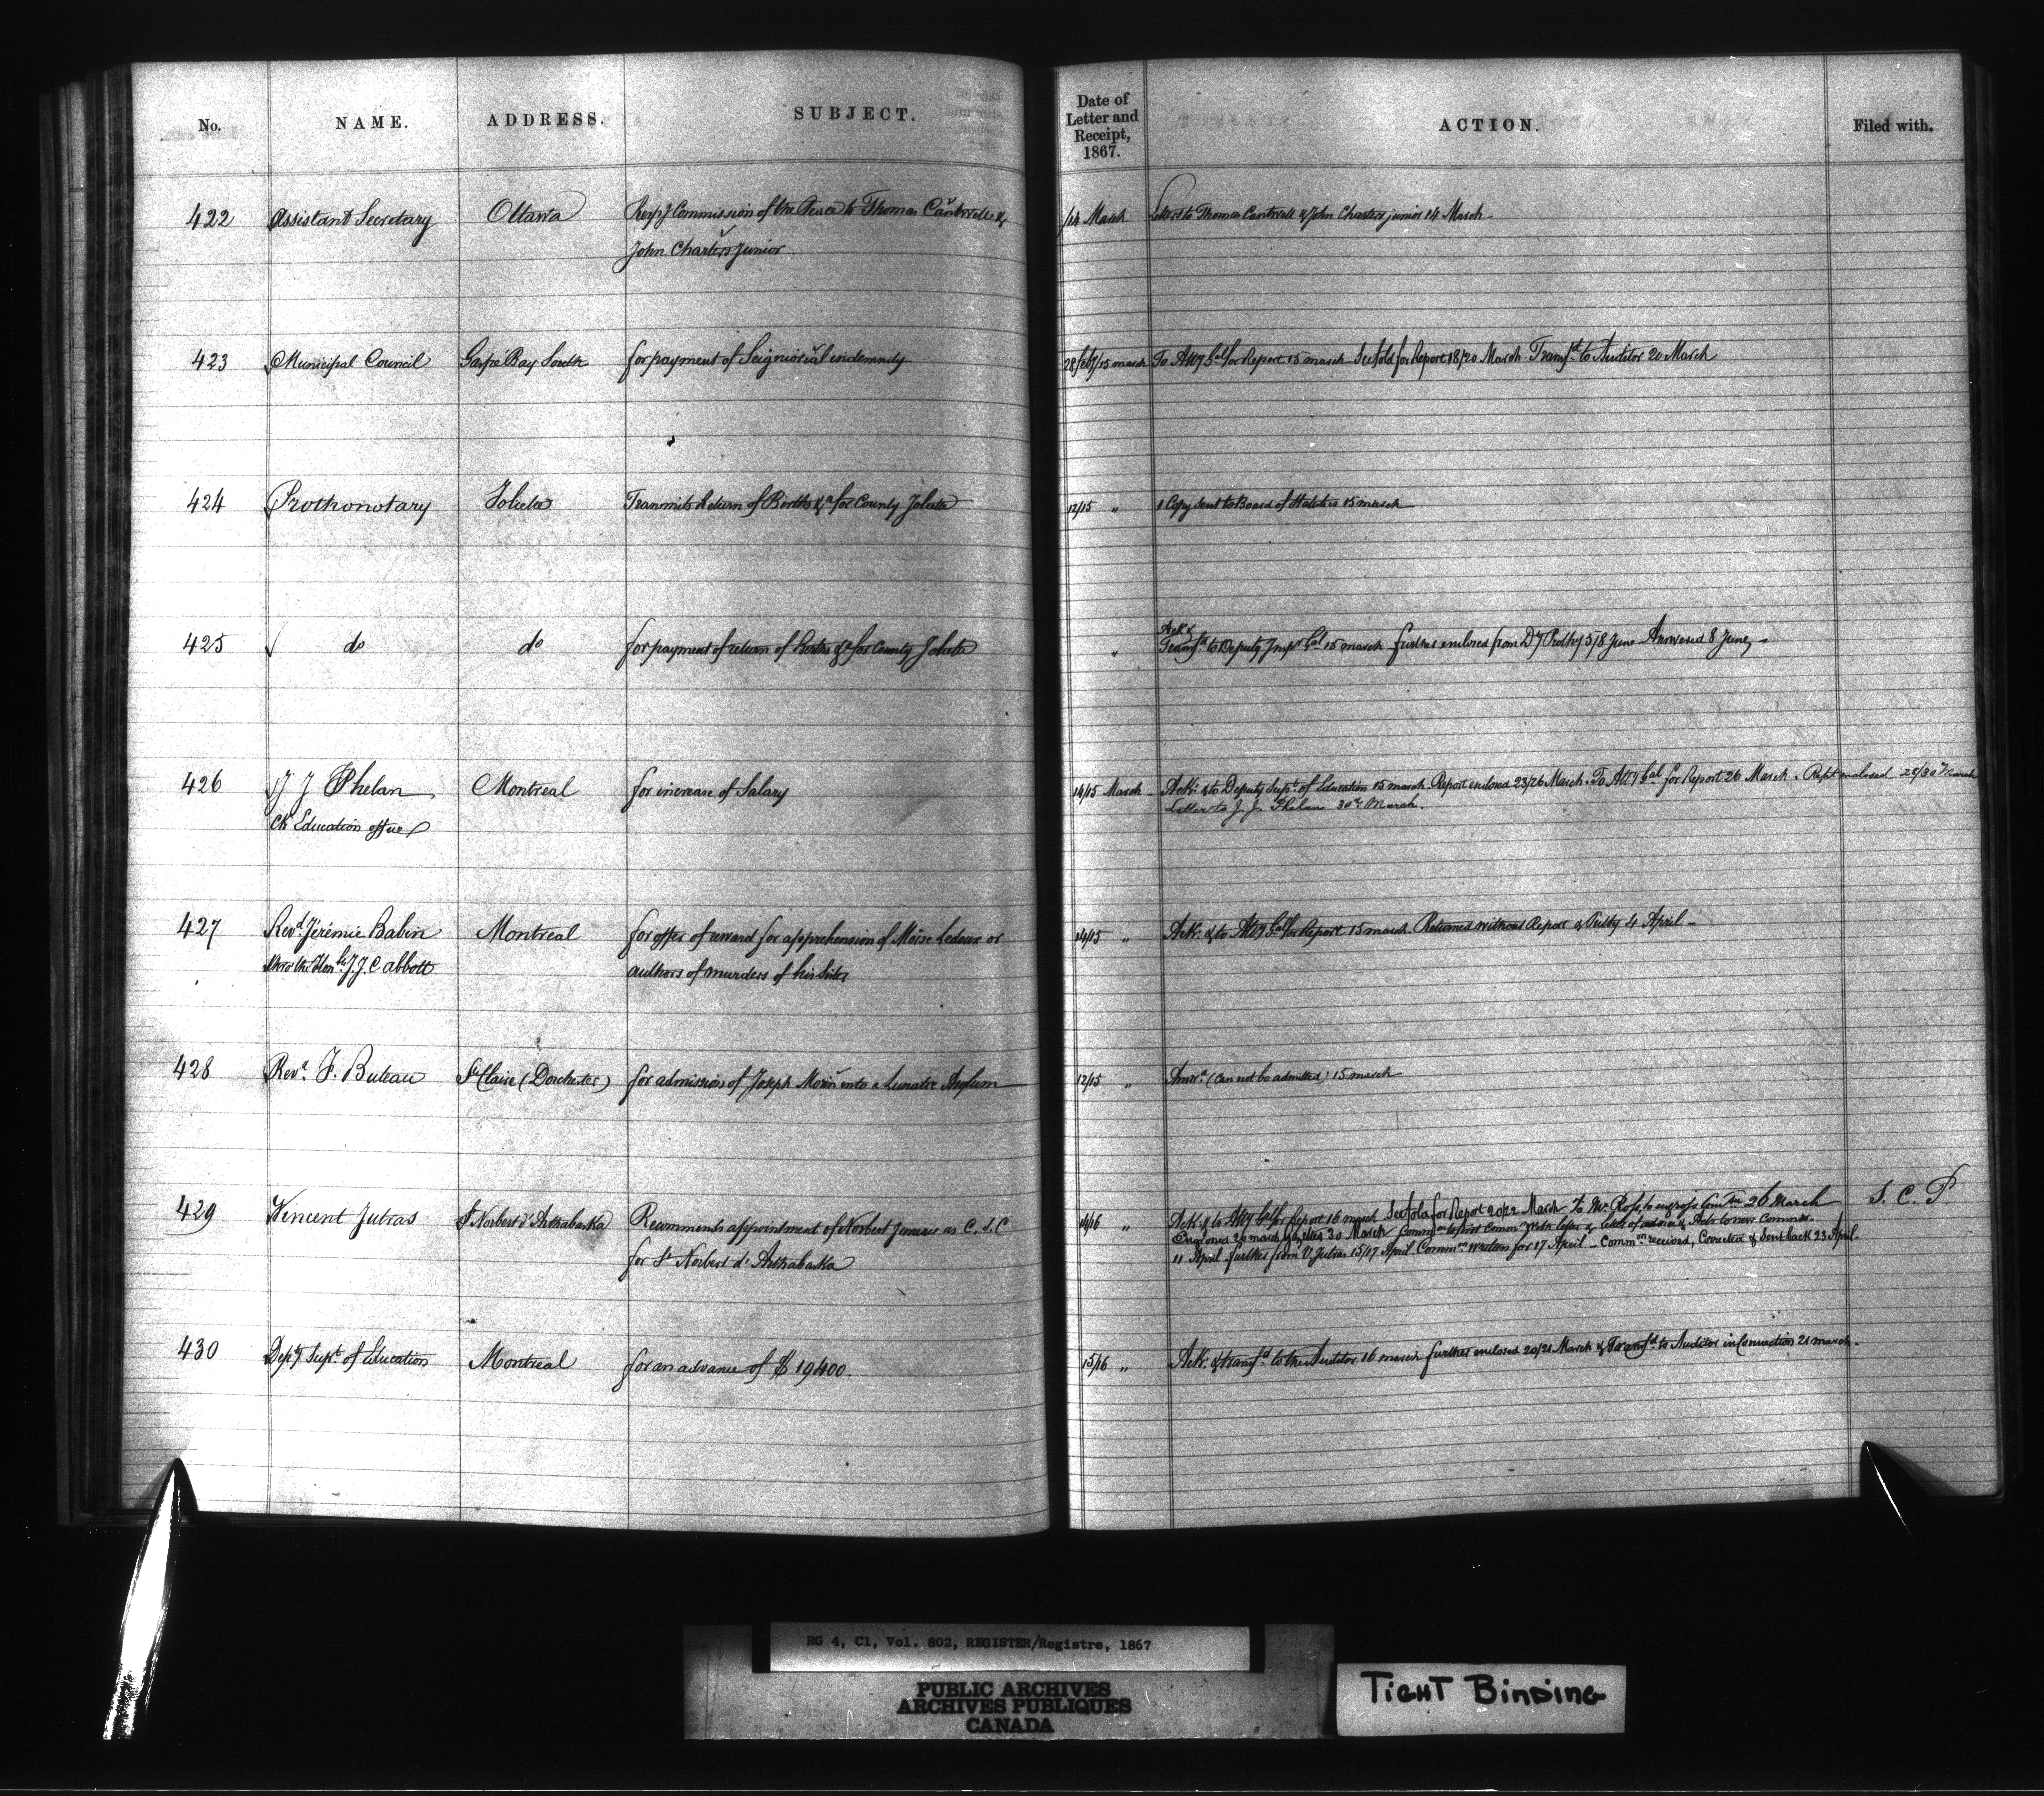 No. NAME. ADDRESS. SUBJECT.
Date of Letter and Receipt, 1867. ACTION. Filed with.
422 Assistant Secretary Ottawa Commission of the Peace to Thomas Cantwell &
John Charters Junior
14 March Letters to Thomas Cantwell & John Charters junior 14 March -
423 Municipal Council Gaspé Bay South for payment of Seigniorial indemnity
28 feby/15 march To Atty Gal for Report 15 march for Report 18/20 March. Transfd to Auditor 20 March
424 Prothonotary Joliette Transmits Return of Births &a for County Joliette
12/15 " 1 Copy sent to Board of Statistics 15 march
425 do do for payment of return of Births &a for County Joliette
" Ack &
Transfd to Deputy Inspr Gal 15 march further enclosed from Dy Prothy 5/8 June Answered 8 June -
426 J J Phelan Montreal for increase of Salary
Ck Education office
14/15 March Ack. & to Deputy Supt. of Education 15 march Report enclosed 23/26 March. To Atty Gal for Report 26 March. Rept enclosed 28/30 March
Letter to J. J. Phelan 30th March.
427 Revd. Jérémie Babin Montreal for offer of reward for apprehension of Moïse Ledoux or
thro the Honble J. J. C abbott authors of murders of his Sister
14/15 " Ack. & to Atty Gal for Report 15 march Returned without Report 4 April -
428 Revd. F. Buteau Ste Claire (Dorchester) for admission of Joseph Morin into a Lunatic Asylum
12/15 " Answd. (Can not be admitted) 15 march
429 Vincent Jutras St Norbert d'Arthabaska Recommends appointment of Norbert as C. S. C
for St Norbert d'Arthabaska
14/16 " Ack. & to Atty Gal for Report 16 march for Report 20/22 March To Mr. Ross to engross Comon 26 March S. C. P
Engrossed 26 march 30 March
11 April further from V Jutras 15/17 April Common written for 17 April - Common received, Corrected & Sent back 23 April.
430 Depty Supt. of Education Montreal for an advance of $ 19400.
15/16 " Ack. & transfd to the Auditor 16 march further enclosed 20/21 March & Transfd to Auditor in Connection 21 march -
RG 4, C1, Vol. 802, REGISTER/Registre, 1867
PUBLIC ARCHIVES
ARCHIVES PUBLIQUES
CANADA
TIGHT BINDING